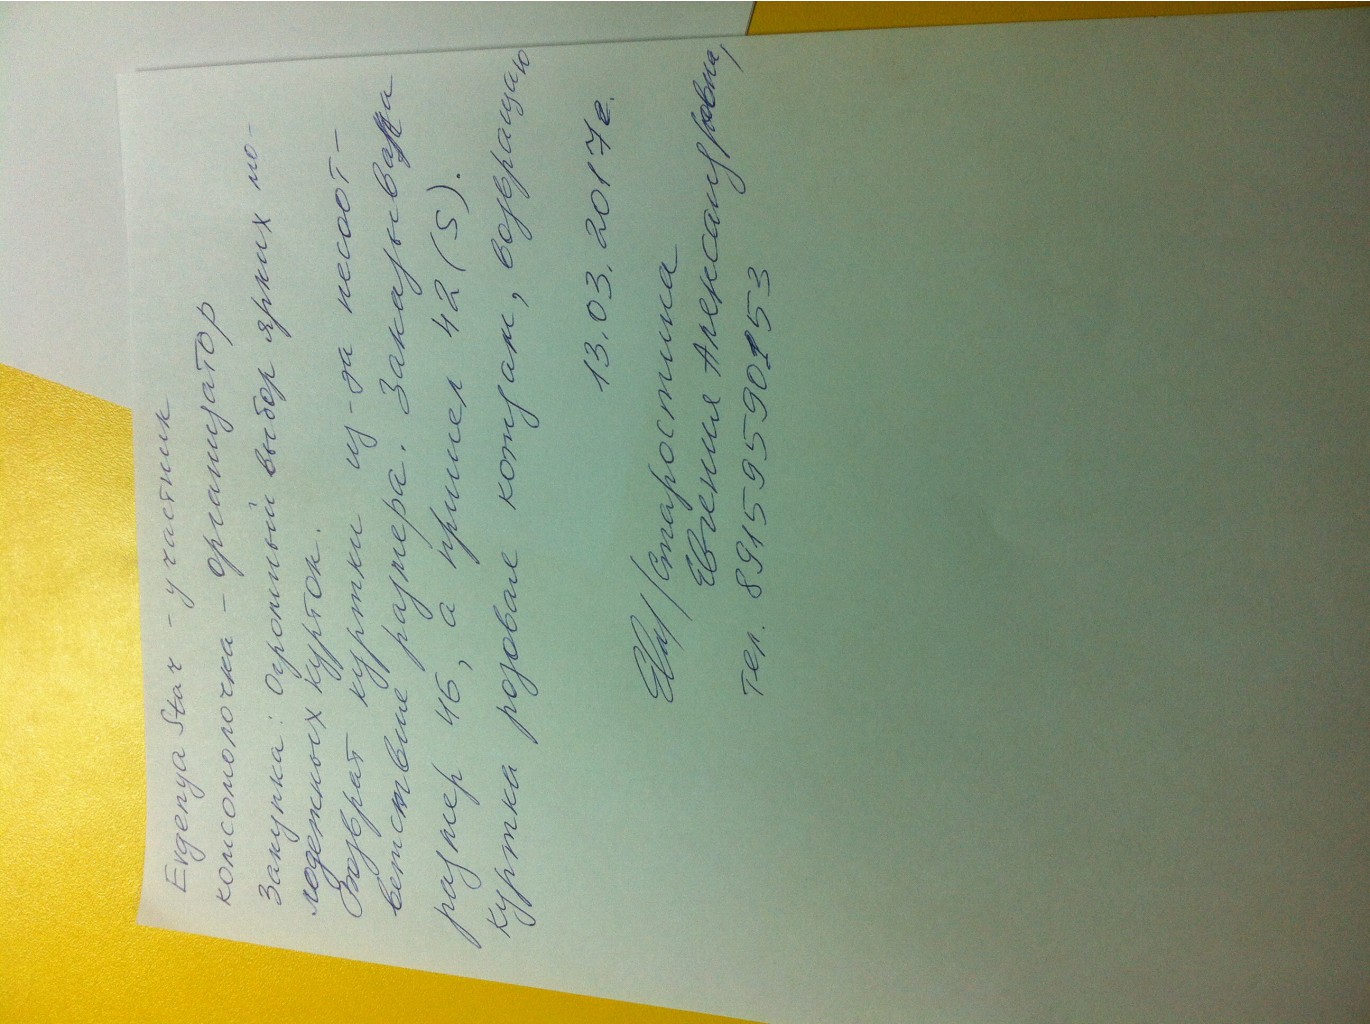 Evgenya Star - участник
комсомолочка - организатор
Закупка: Огромный выбор ярких мо-
лодежных курток.
Возврат куртки из-за несоот-
ветствие размера. Заказывала
размер 46, а пришел 42 (S).
куртка розовая кожзам, возвращаю
13.03.2017г.
/Старостина
Евгения Александровна/
тел. 89159590153